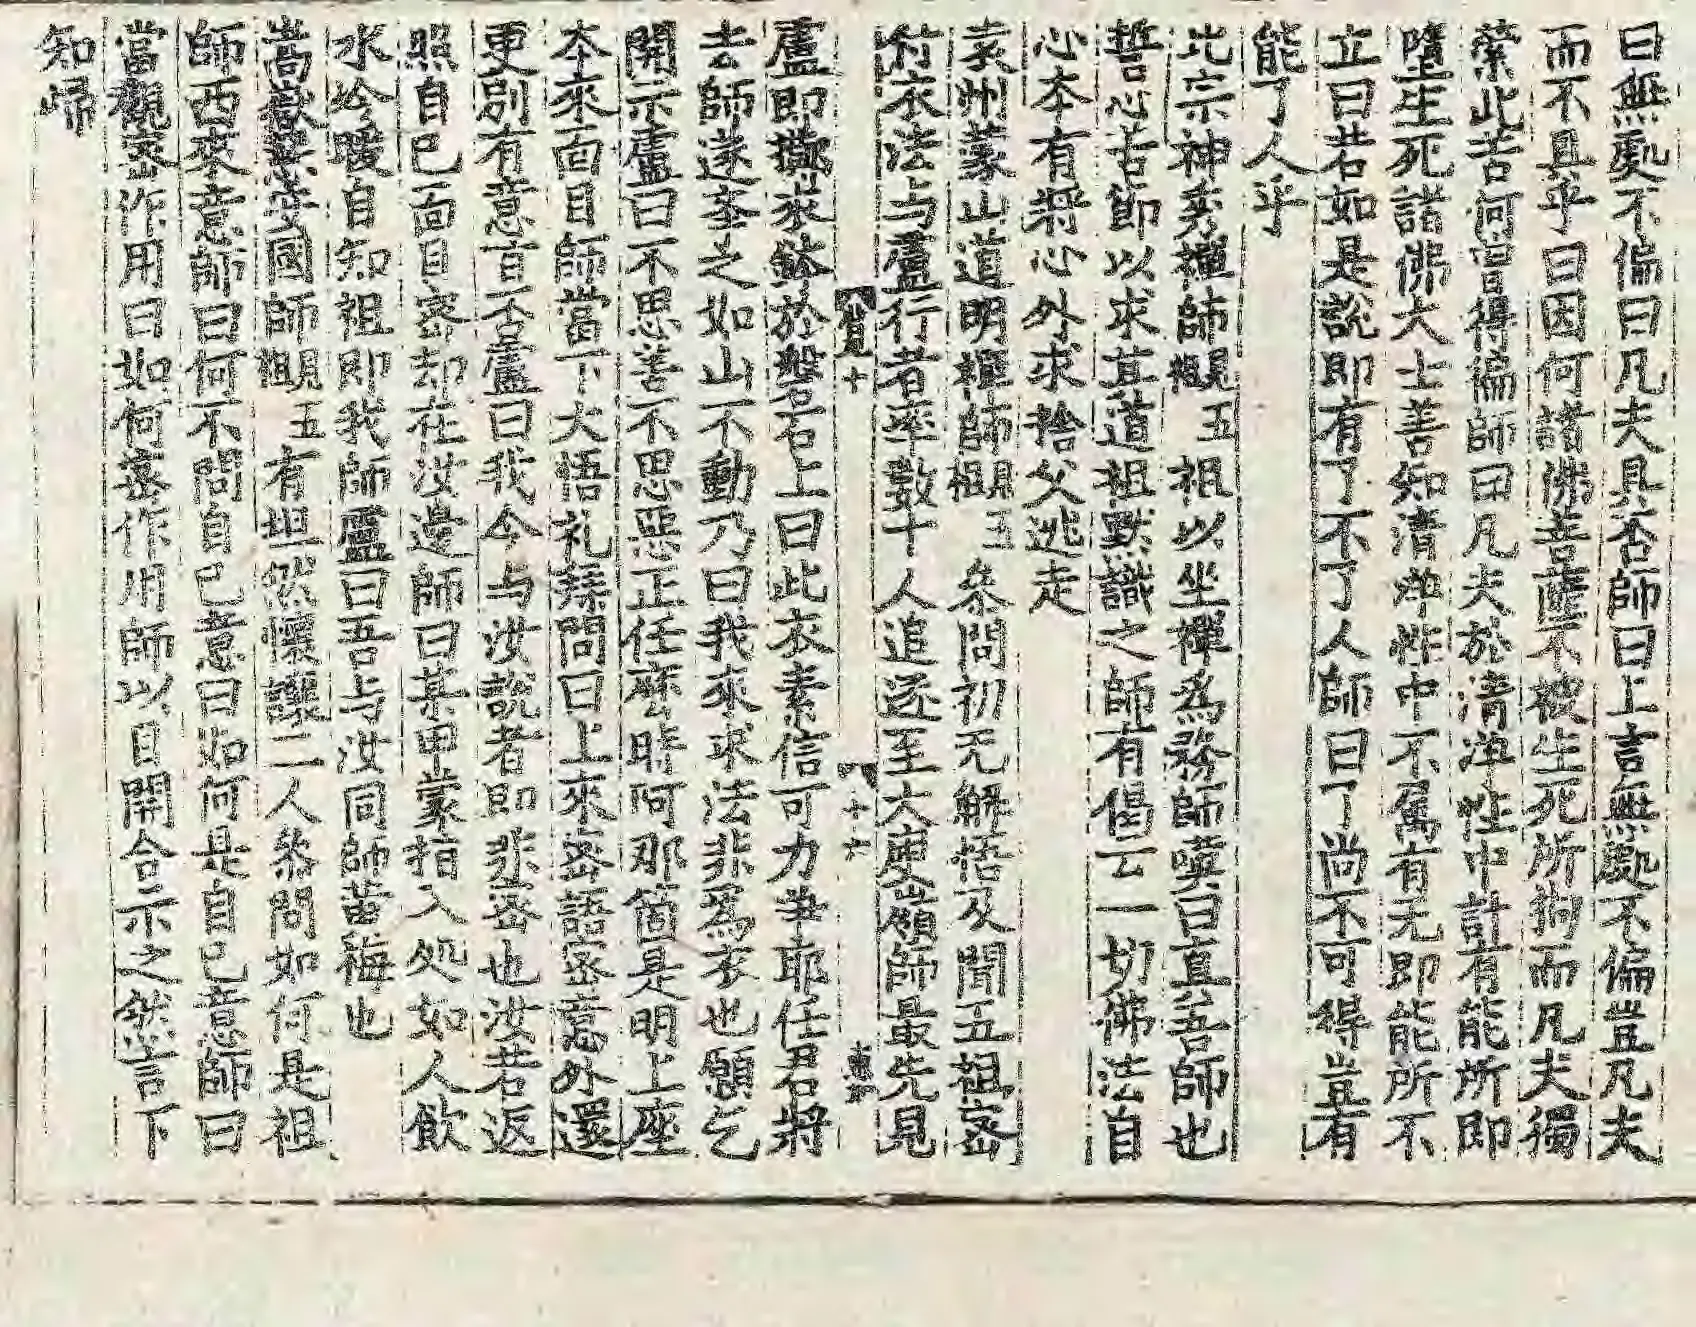 曰無處不偏曰凡夫具否師曰上言無處不偏豈凡夫
而不具乎曰因何諸佛菩薩不被生死所拘而凡夫獨
縈此苦何曾得徧師曰凡夫於清淨性中計有能所即
墮生死諸佛大士善知清淨性中不属有无即能所不
立曰若如是說即有了不了人師曰了尚不可得豈有
能了人乎
北宗神秀禪師 嗣五祖 以坐禪爲務師嘆曰直吾師也
誓心苦節以求其道祖默識之師有偈云一切佛法自
心本有將心外求捨父逃走
袁州蒙山道明禪師 嗣五祖 叅問初无解悟及聞五祖密
付衣法与盧行者率數十人追逐至大庾嶺師最先見
盧即擲衣鉢於盤石上曰此衣表信可力爭耶任君將
去師遂擧之如山不動乃曰我來求法非爲衣也願乞
開示盧曰不思善不思惡正任麽時阿那箇是明上座
本來面目師當下大悟礼拜問曰上來密語密意外還
更別有意旨否盧曰我今与汝說者即非密也汝若返
照自己面目密却在汝邊師曰某甲蒙指入処如人飲
水冷暖自知祖即我師盧曰吾与汝同師黃梅也
嵩嶽慧安國師 嗣五祖 有坦然懷讓二人叅問如何是祖
師西來意師曰何不問自己意曰如何是自己意師曰
當觀密作用曰如何密作用師以目開合示之然言下
知歸